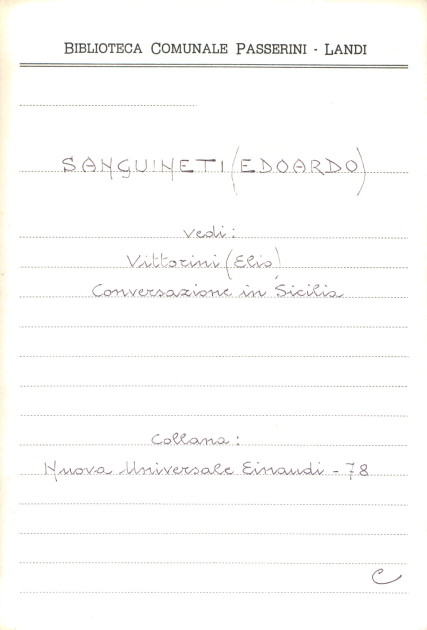 BIBLIOTECA COMUNALE PASSERINI - LANDI
SANGUINETI (EDOARDO)
vedi:
Vittorini (Elio)
Conversazione in Sicilia
Collana:
Nuova Universale Einaudi - 78
C